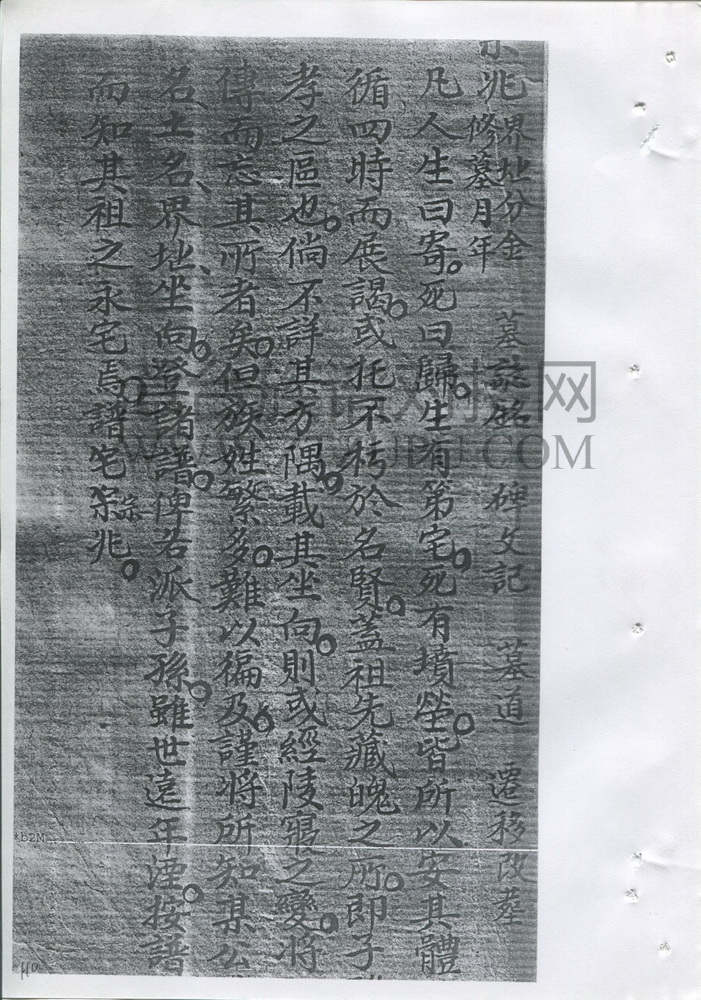 兆 界址分金 修墓月年 墓誌銘 碑文記 墓道 遷移改葬
凡人生曰寄。死曰歸。生有第宅。死有墳塋。皆所以安其體
循四時而展謁。或托不朽於名賢。蓋祖先藏魄之所。即子
孝之區也。倘不詳其方隅。載其坐向。則或經陵之變。將
傳而忘其所者矣。但族姓繁多。難以徧及。謹將所知某公
名、土名、界址、坐向。登諸譜。俾若派子孫。雖世遠年湮。按譜
而知其祖之永宅焉。譜宅宗兆。
网
.COM
B2M